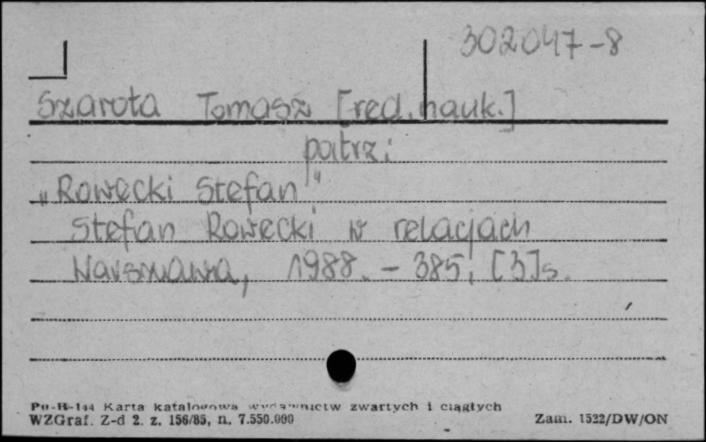 302047-8
Szarota Tomasz [red. nauk.]
patrz:
"Rowecki Stefan"
Stefan Rowecki w relacjach
Warszawa, 1988. - 385, [3]s.
Pu-B-144 Karta katalogowa wydawnictw zwartych i ciągłych
WZGraf. Z-d 2. z. 156/85, n. 7.550.000
Zam. 1522/DW/ON